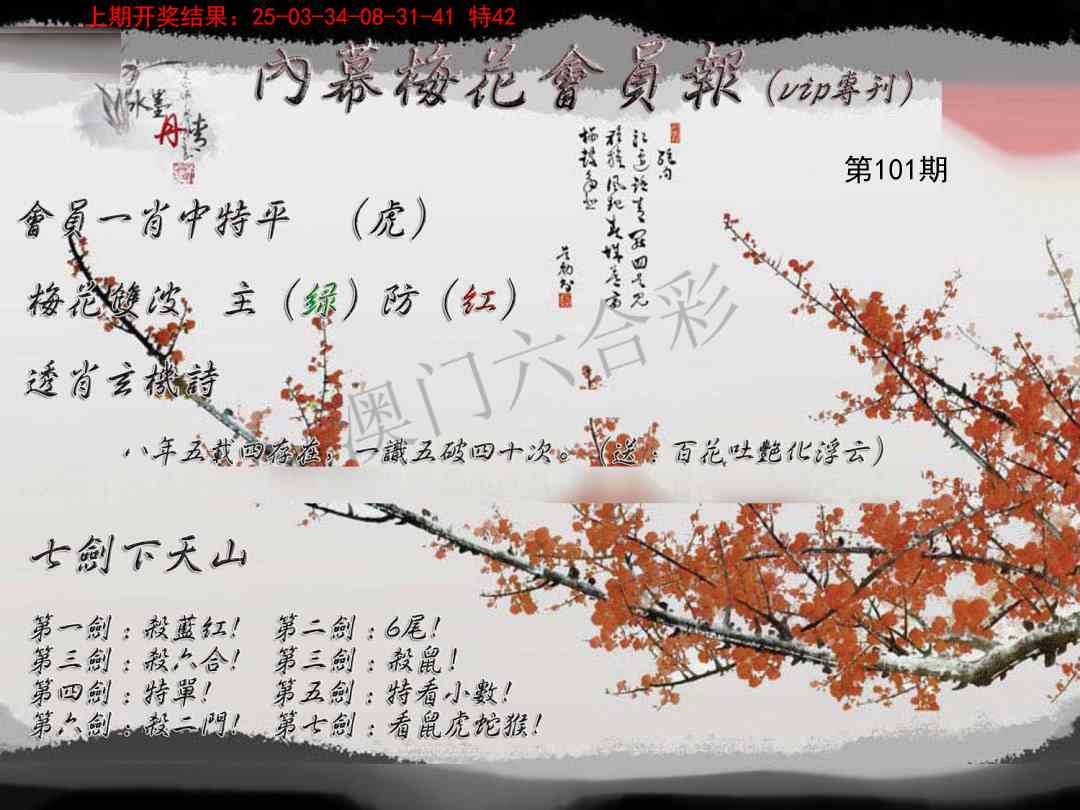 上期开奖结果：25-03-34-08-31-41 特42
內幕梅花會員報（vip專刊）
水墨
丹情
第101期
會員一肖中特平　（虎）
梅花雙波　主（绿）防（红）
透肖玄機詩
澳门六合彩
八年五載四存在，一識五破四十次。（送：百花吐艷化浮云）
七劍下天山
第一劍：殺藍紅！　第二劍：6尾！
第三劍：殺六合！　第三劍：殺鼠！
第四劍：特單！　第五劍：特看小數！
第六劍：殺二門！　第七劍：看鼠虎蛇猴！